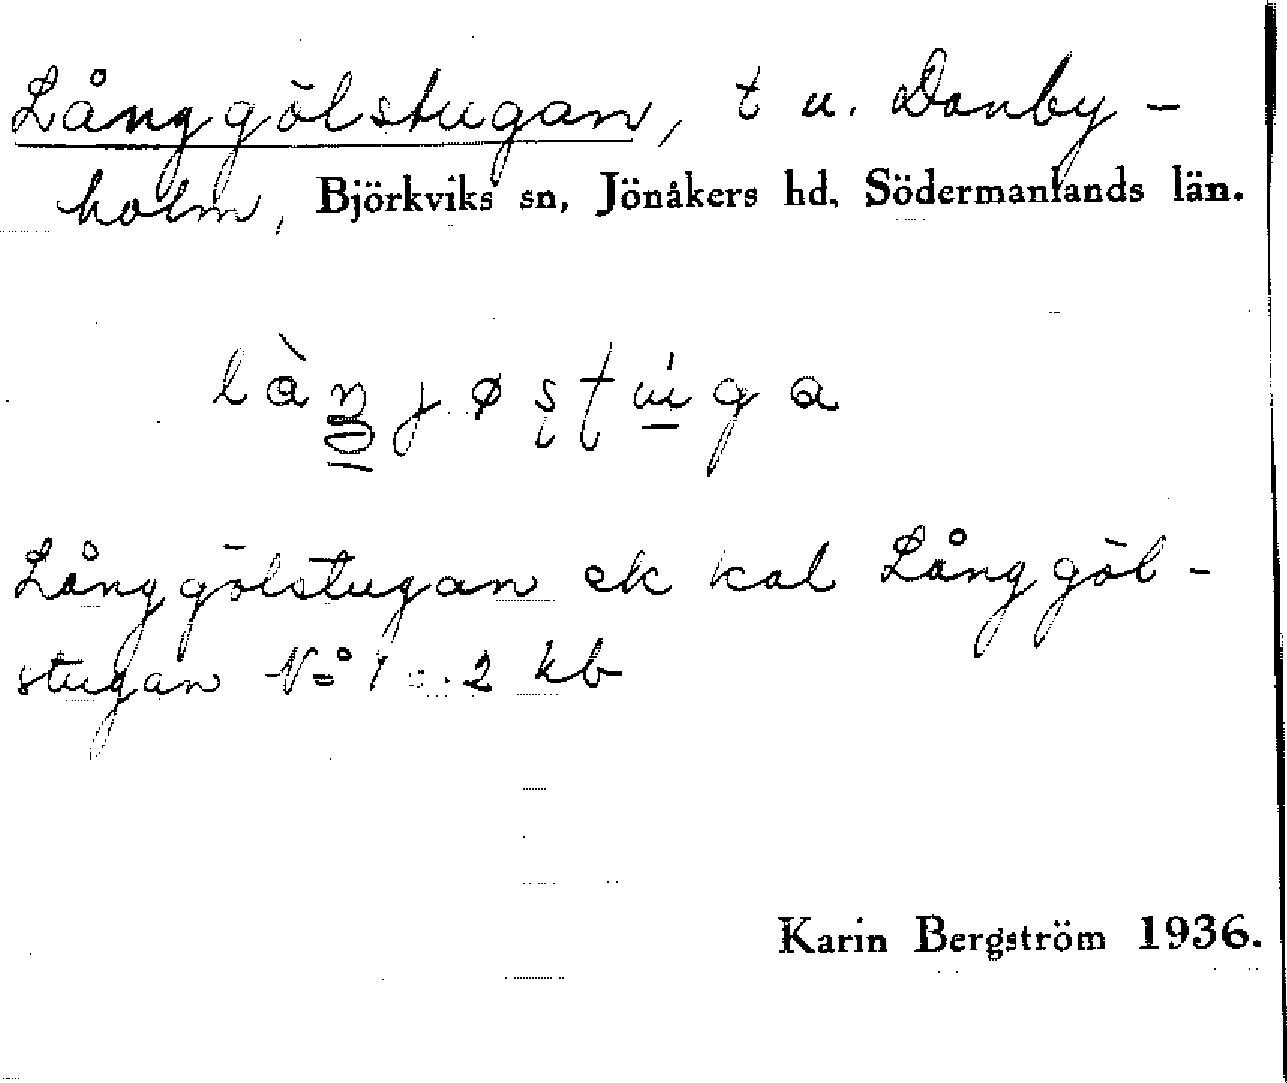 Långgölstugan, t u. Danby-
holm, Björkviks sn, Jönåkers hd, Södermanlands län.
Långgölstugan ek kal Långgöl-
stugan No 1 o. 2 kb
Karin Bergström 1936.